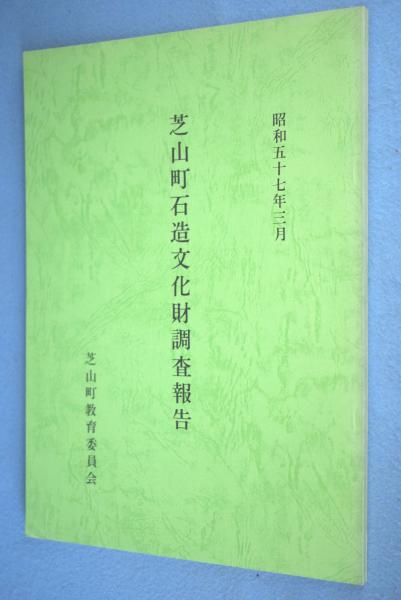 昭和五十七年三月
芝山町石造文化財調査報告
芝山町教育委員会